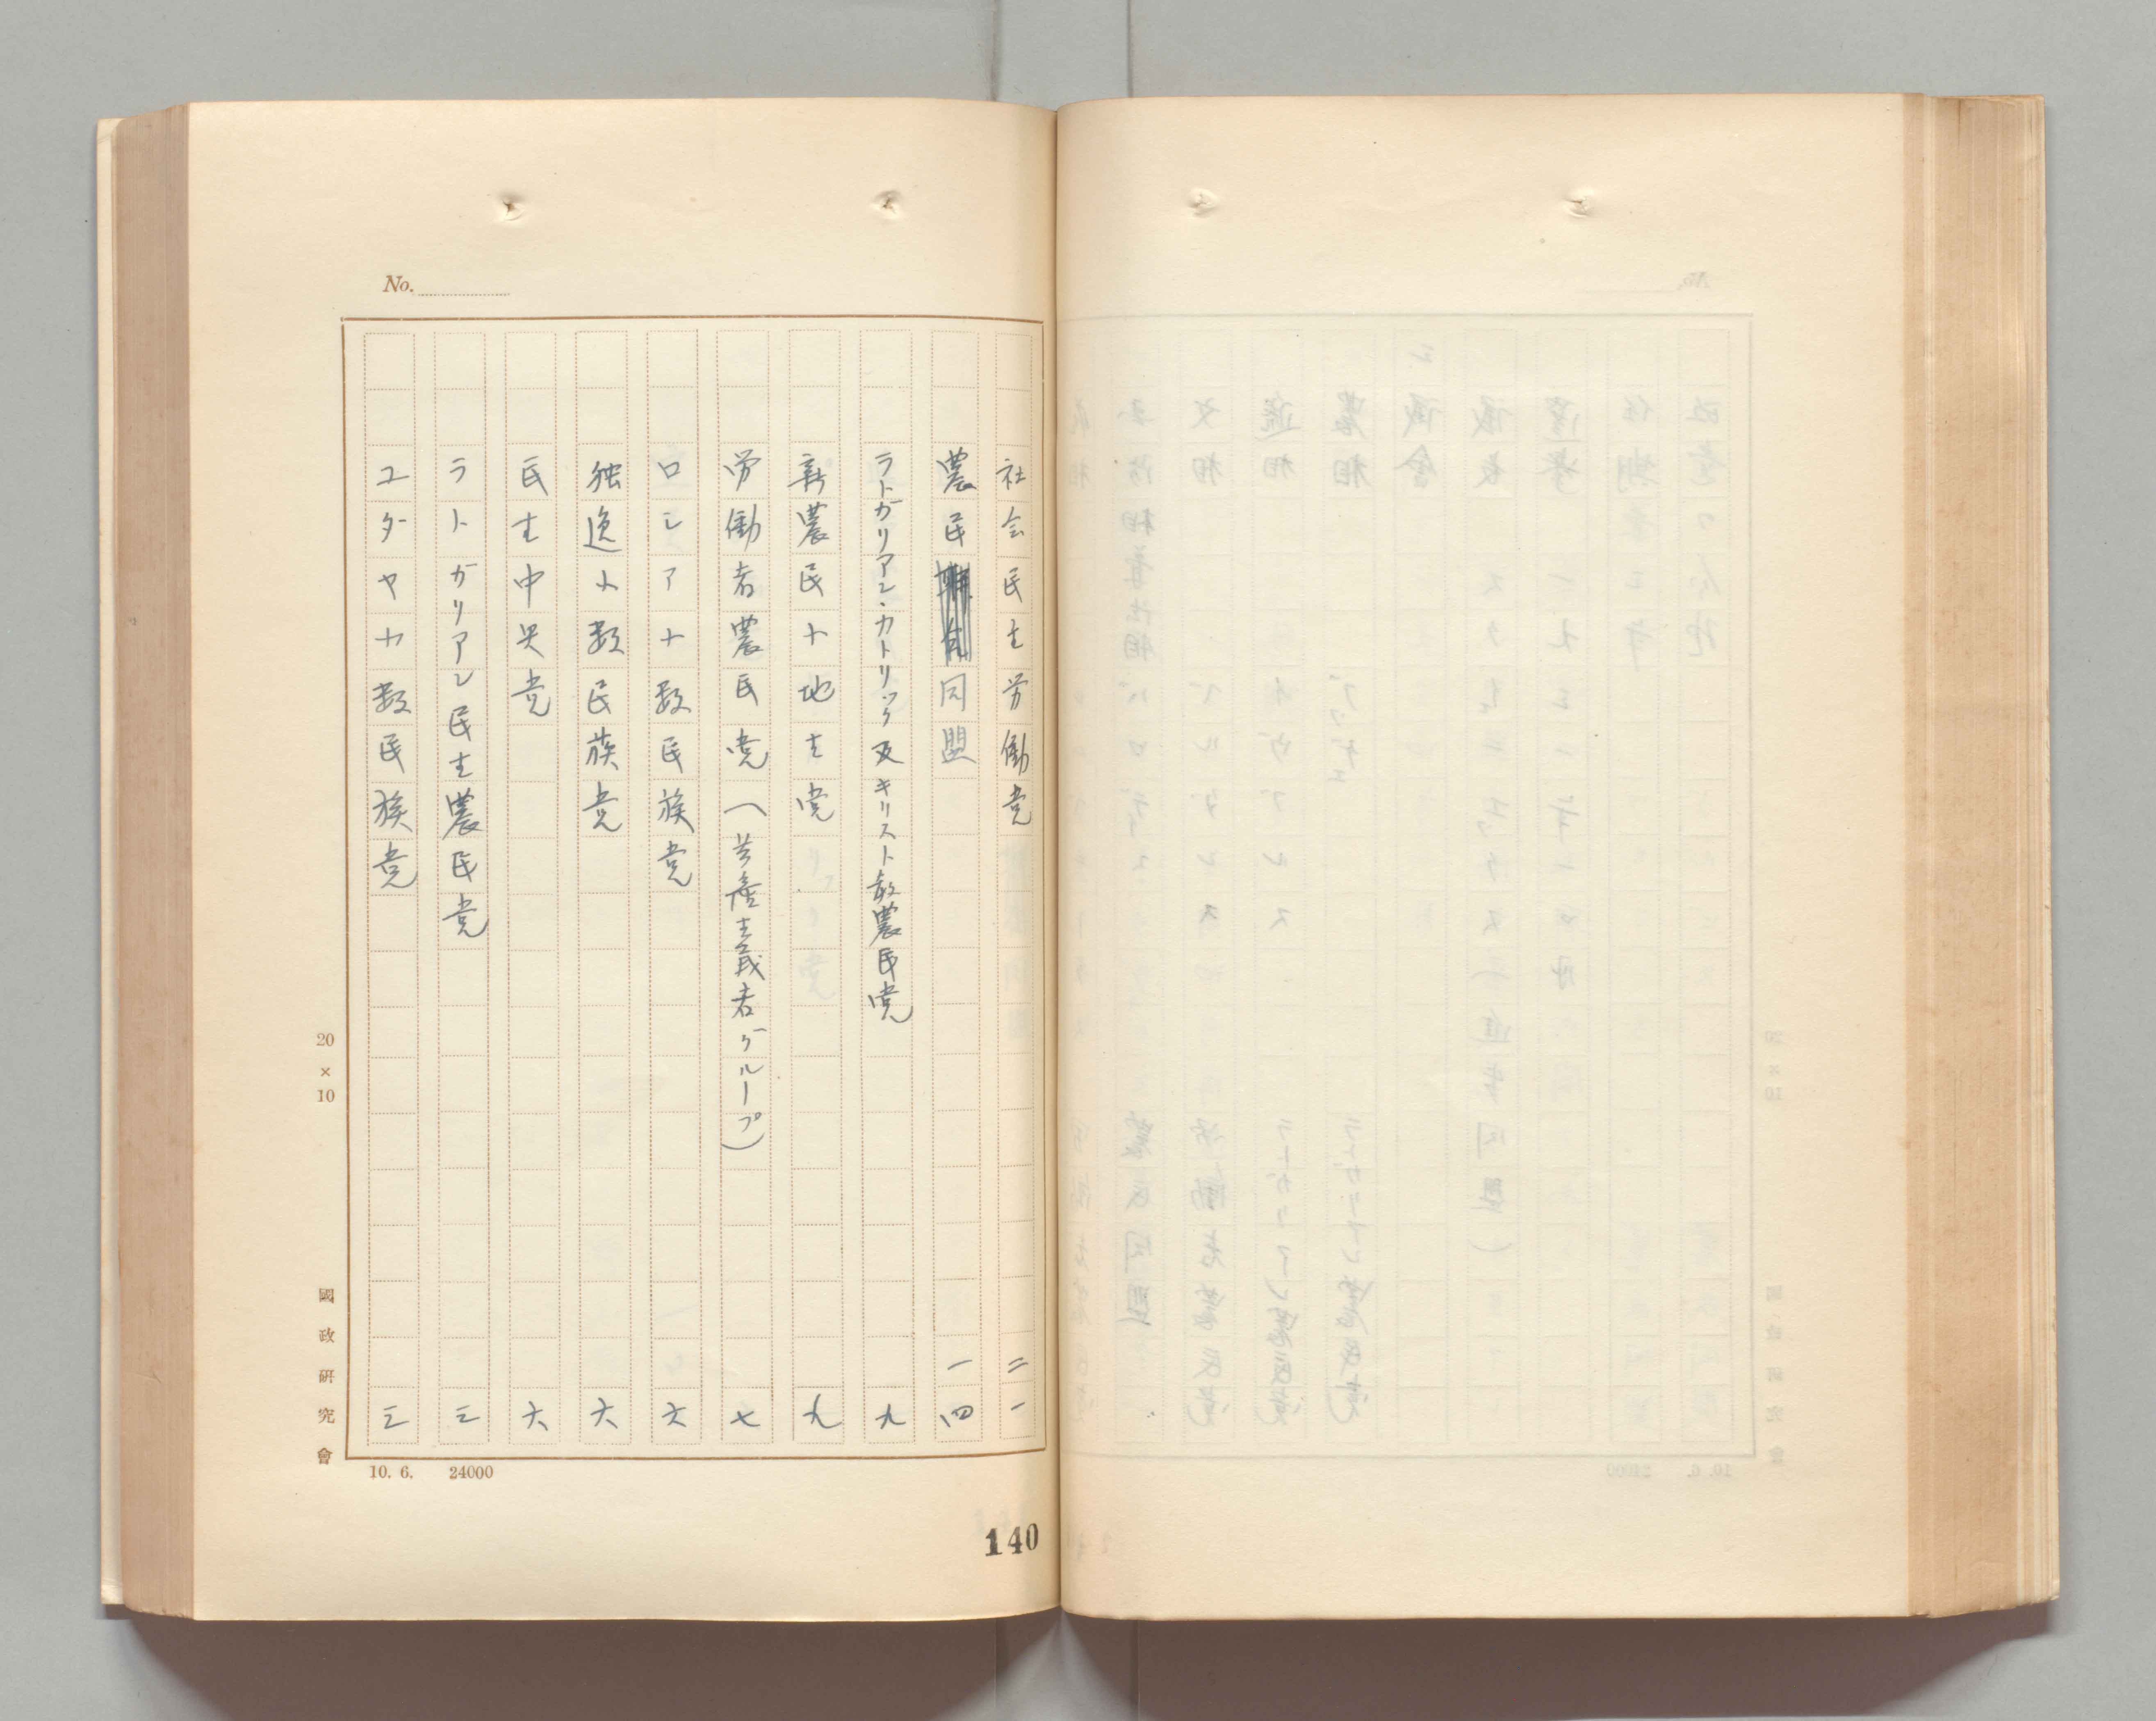 No.
社会民主労働党 二一
農民同盟 一四
ラトガリアン・カトリック及キリスト教農民党 九
新農民ト地主党 九
労働者農民党(共産主義者グループ)七
ロシア小数民族党 六
独逸小数民族党 六
民主中央党 六
ラトガリアン民主農民党 三
ユダヤ小数民族党 三
20×10
國政研究會
10. 6. 24000
140